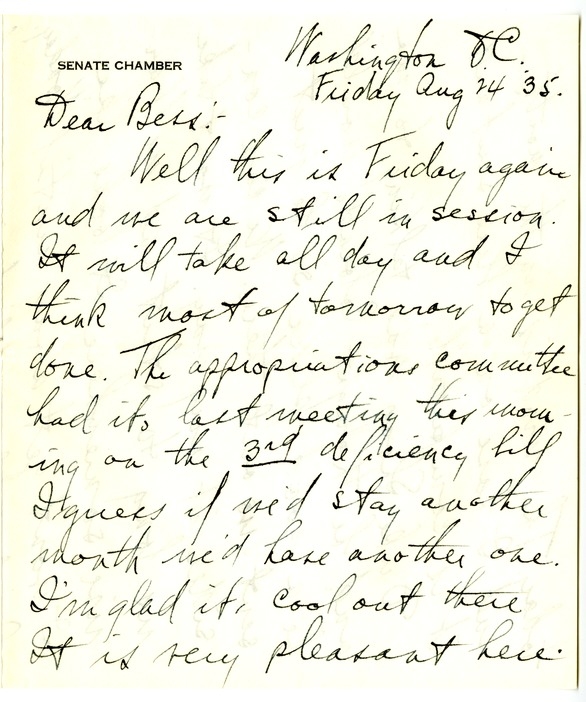 SENATE CHAMBER
Washington D.C.
Friday Aug 24 '35.
Dear Bess:-
Well this is Friday again
and we are still in session.
It will take all day and I
think most of tomorrow to get
done. The appropriations committee
had its last meeting this morn-
ing on the 3rd deficiency bill
I guess if we'd stay another
month we'd have another one.
I'm glad it's cool out there
It is very pleasant here.